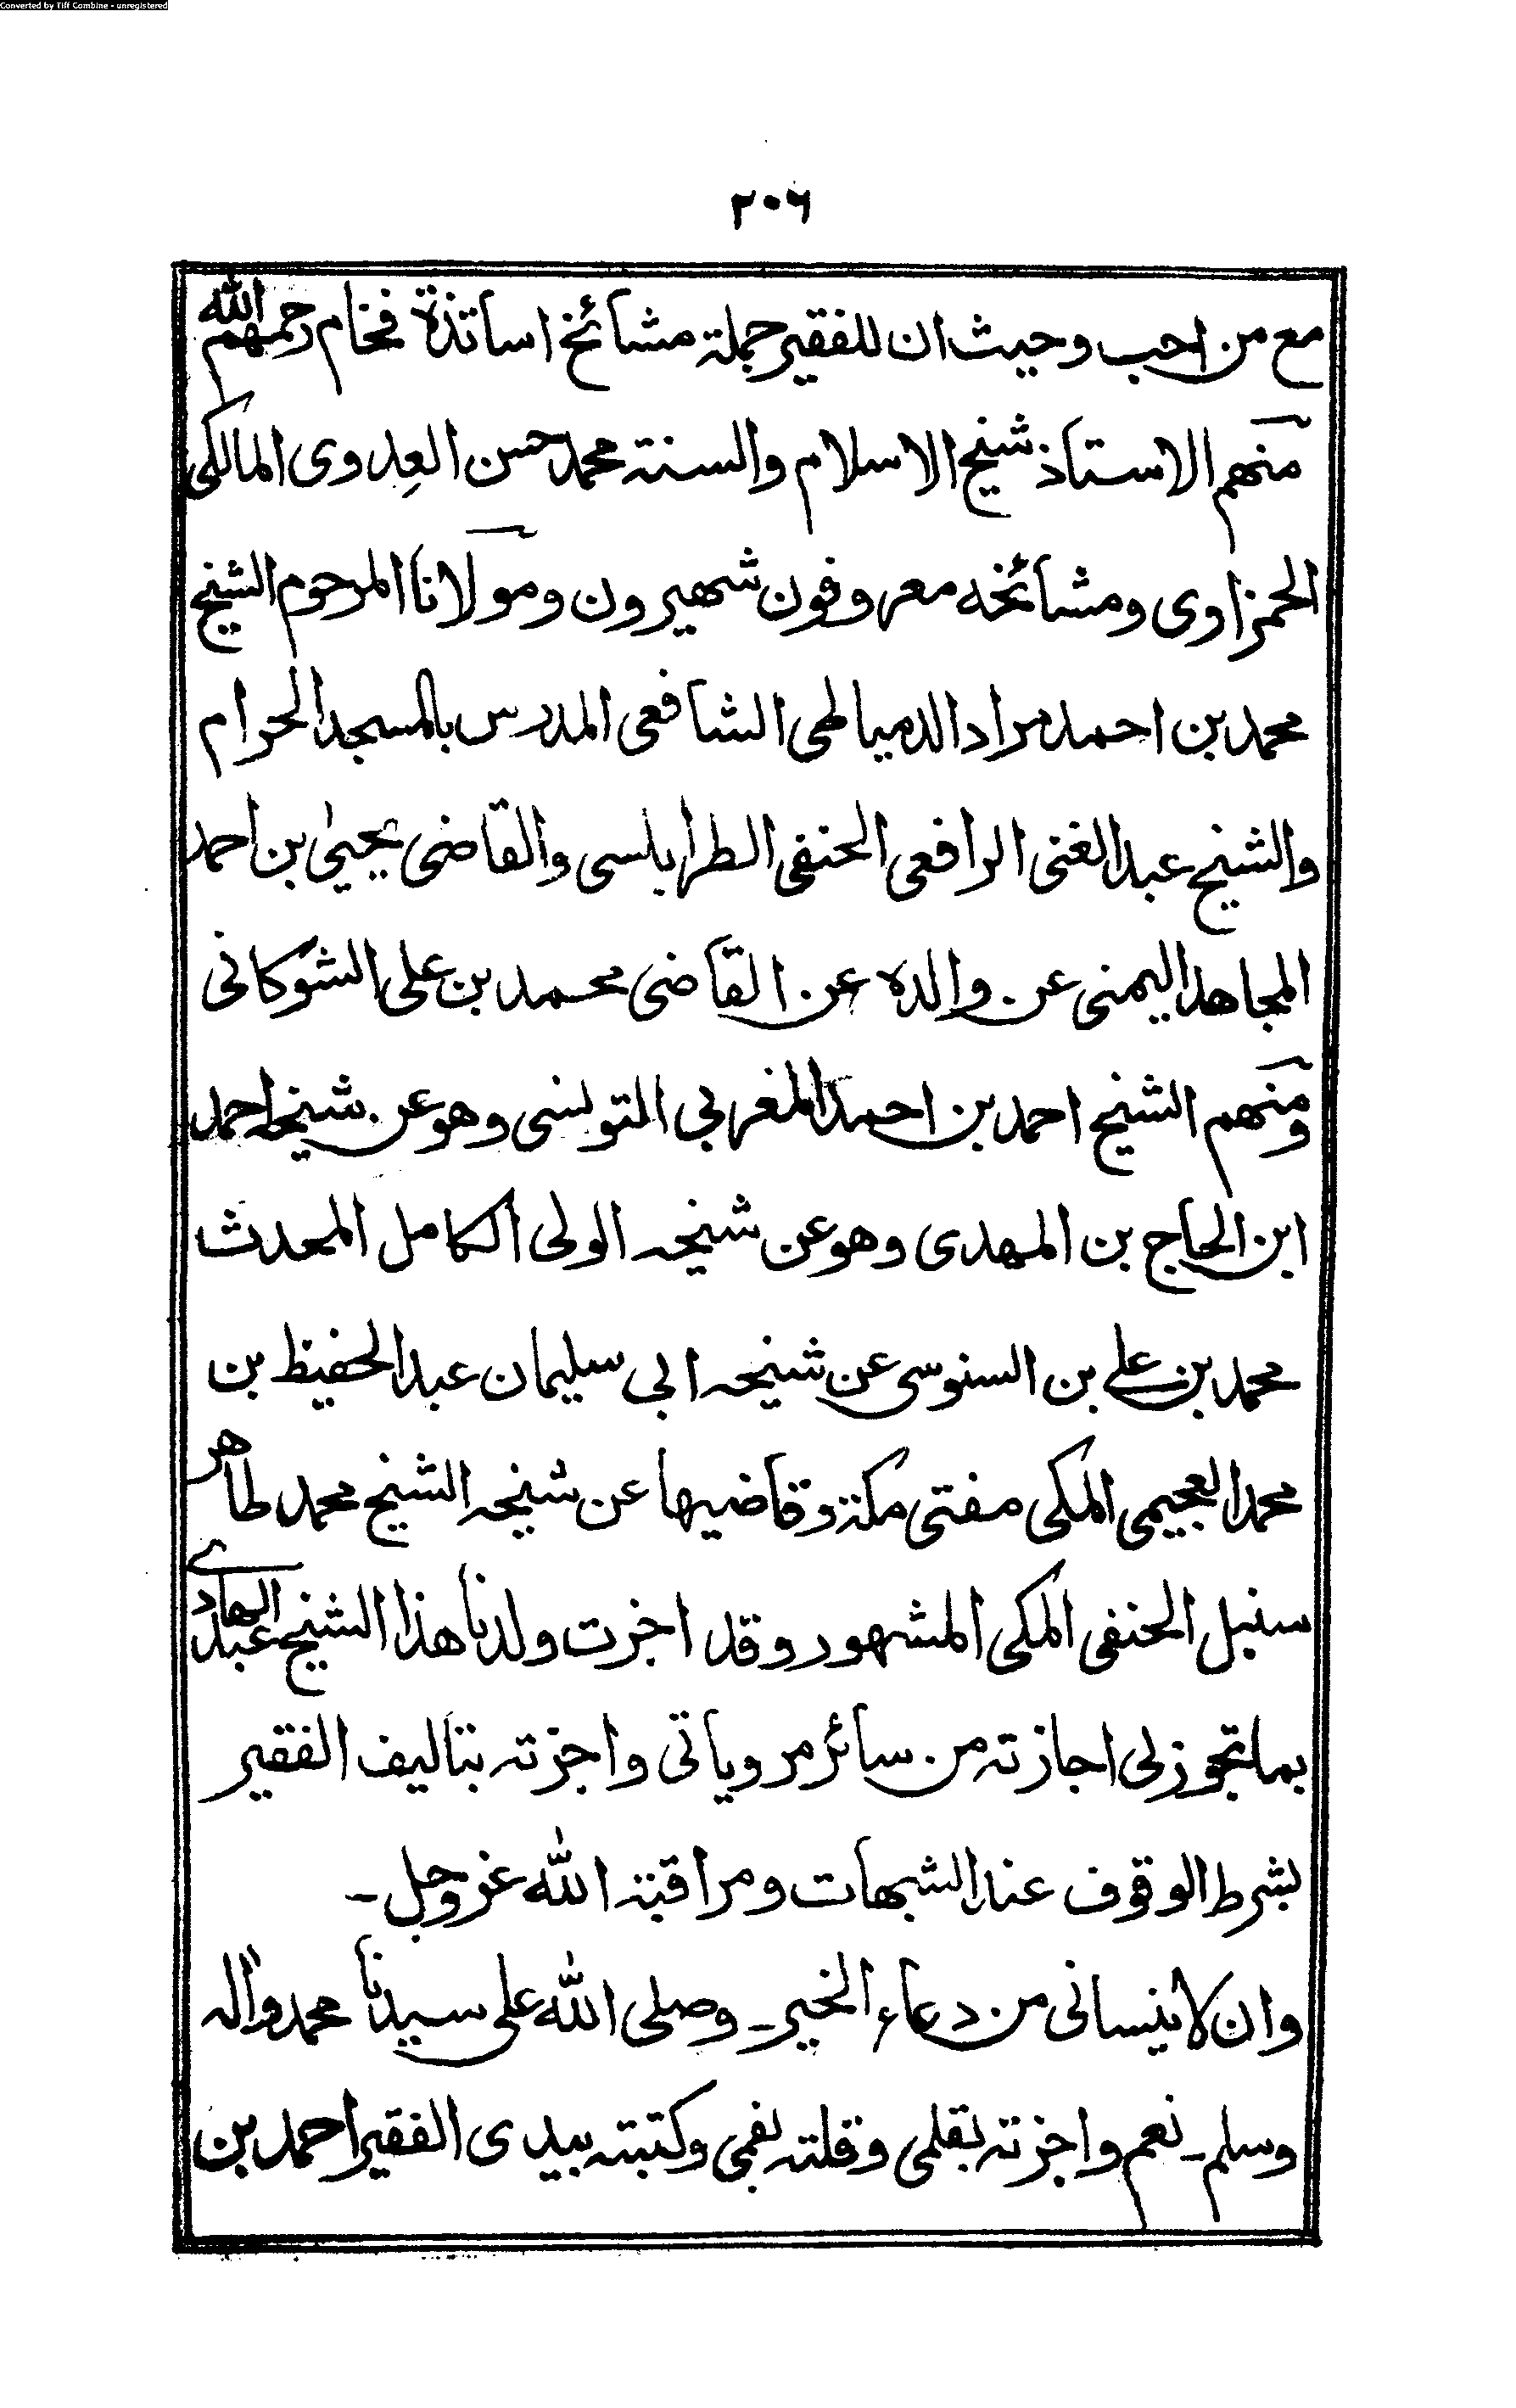 Converted by Tiff Combine - unregistered
۲۰۶
مع من احب وحيث ان للفقير جملة مشائخ اساتذة فخام رحمهم الله
منهم الاستاذ شيخ الاسلام والسنة محمد حسن العِدوى المالكى
الحمزاوى ومشائخه معروفون شهيرون ومولانا المرحوم الشيخ
محمد بن احمد مراد الدمياطى الشافعى المدرس بالمسجد الحرام
والشيخ عبد الغنى الرافعى الحنفى الطرابلسى والقاضى يحيىٰ بن احمد
المجاهد اليمنى عن والده عن القاضى محمد بن على الشوكانى
ومنهم الشيخ احمد بن احمد المغربى التونسى وهو عن شيخه احمد
ابن الحاج بن المهدى وهو عن شيخه الولى الكامل المحدث
محمد بن على بن السنوسى عن شيخه ابى سليمان عبد الحفيظ بن
محمد العجيمى المكى مفتى مكة وقاضيها عن شيخه الشيخ محمد طاهر
سنبل الحنفى المكى المشهور وقد اجزت ولدنا هذا الشيخ عبد الهادے
بما تجوز لى اجازته من سائر مروياتى واجزته بتاليف الفقير
بشرط الوقوف عند الشبهات ومراقبة الله عز وجل ـ
وان لا ينسانى من دعاء الخير ـ وصلى الله على سيدنا محمد واٰله
وسلم ـ نعم واجزته بقلمى وقلته بفمى وكتبته بيدى الفقير احمد بن